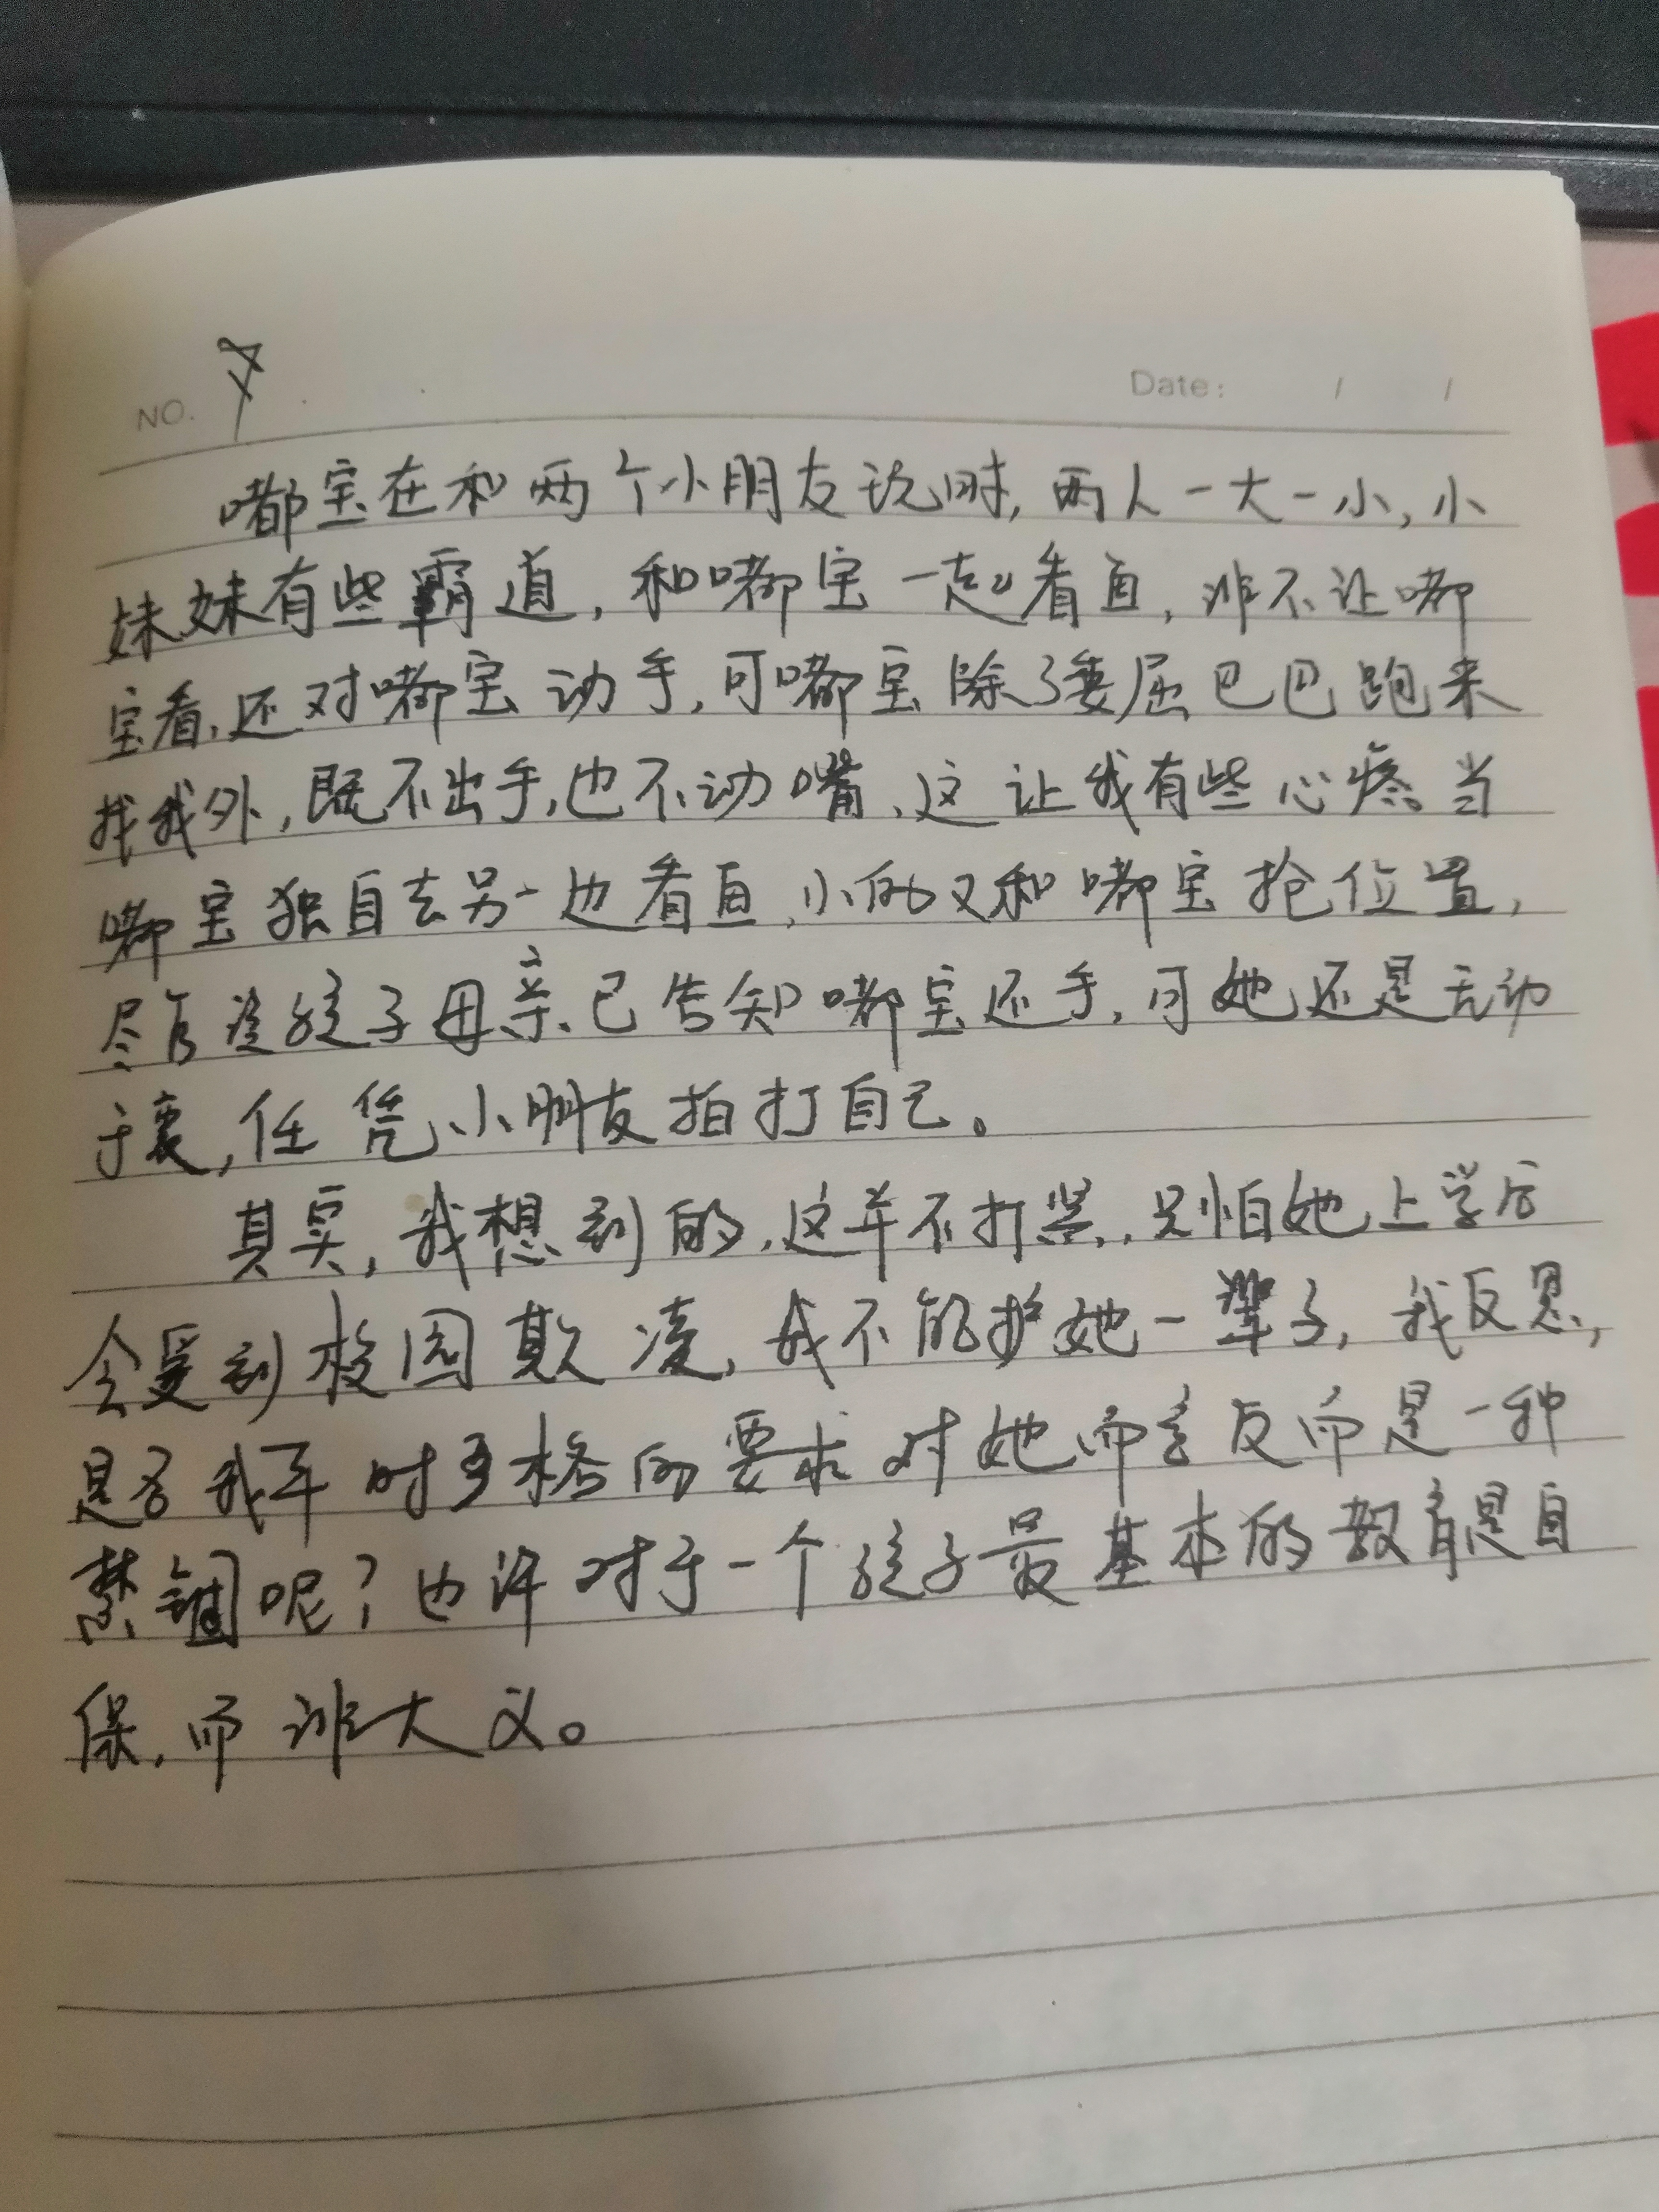 NO. 7 Date: / /
嘟宝在和两个小朋友玩时,两人一大一小,小
妹妹有些霸道,和嘟宝一起看鱼,非不让嘟
宝看,还对嘟宝动手,可嘟宝除了委屈巴巴跑来
找我外,既不出手,也不动嘴,这让我有些心疼。当
嘟宝独自去另一边看鱼,小的又和嘟宝抢位置,
尽管该孩子母亲已告知嘟宝还手,可她还是无动
于衷,任凭小朋友拍打自己。
其实,我想到的,这并不打紧,只怕她上学后
会受到校园欺凌,我不能护她一辈子,我反思,
是否我平时严格的要求对她而言反而是一种
禁锢呢?也许对于一个孩子最基本的教育是自
保,而非大义。